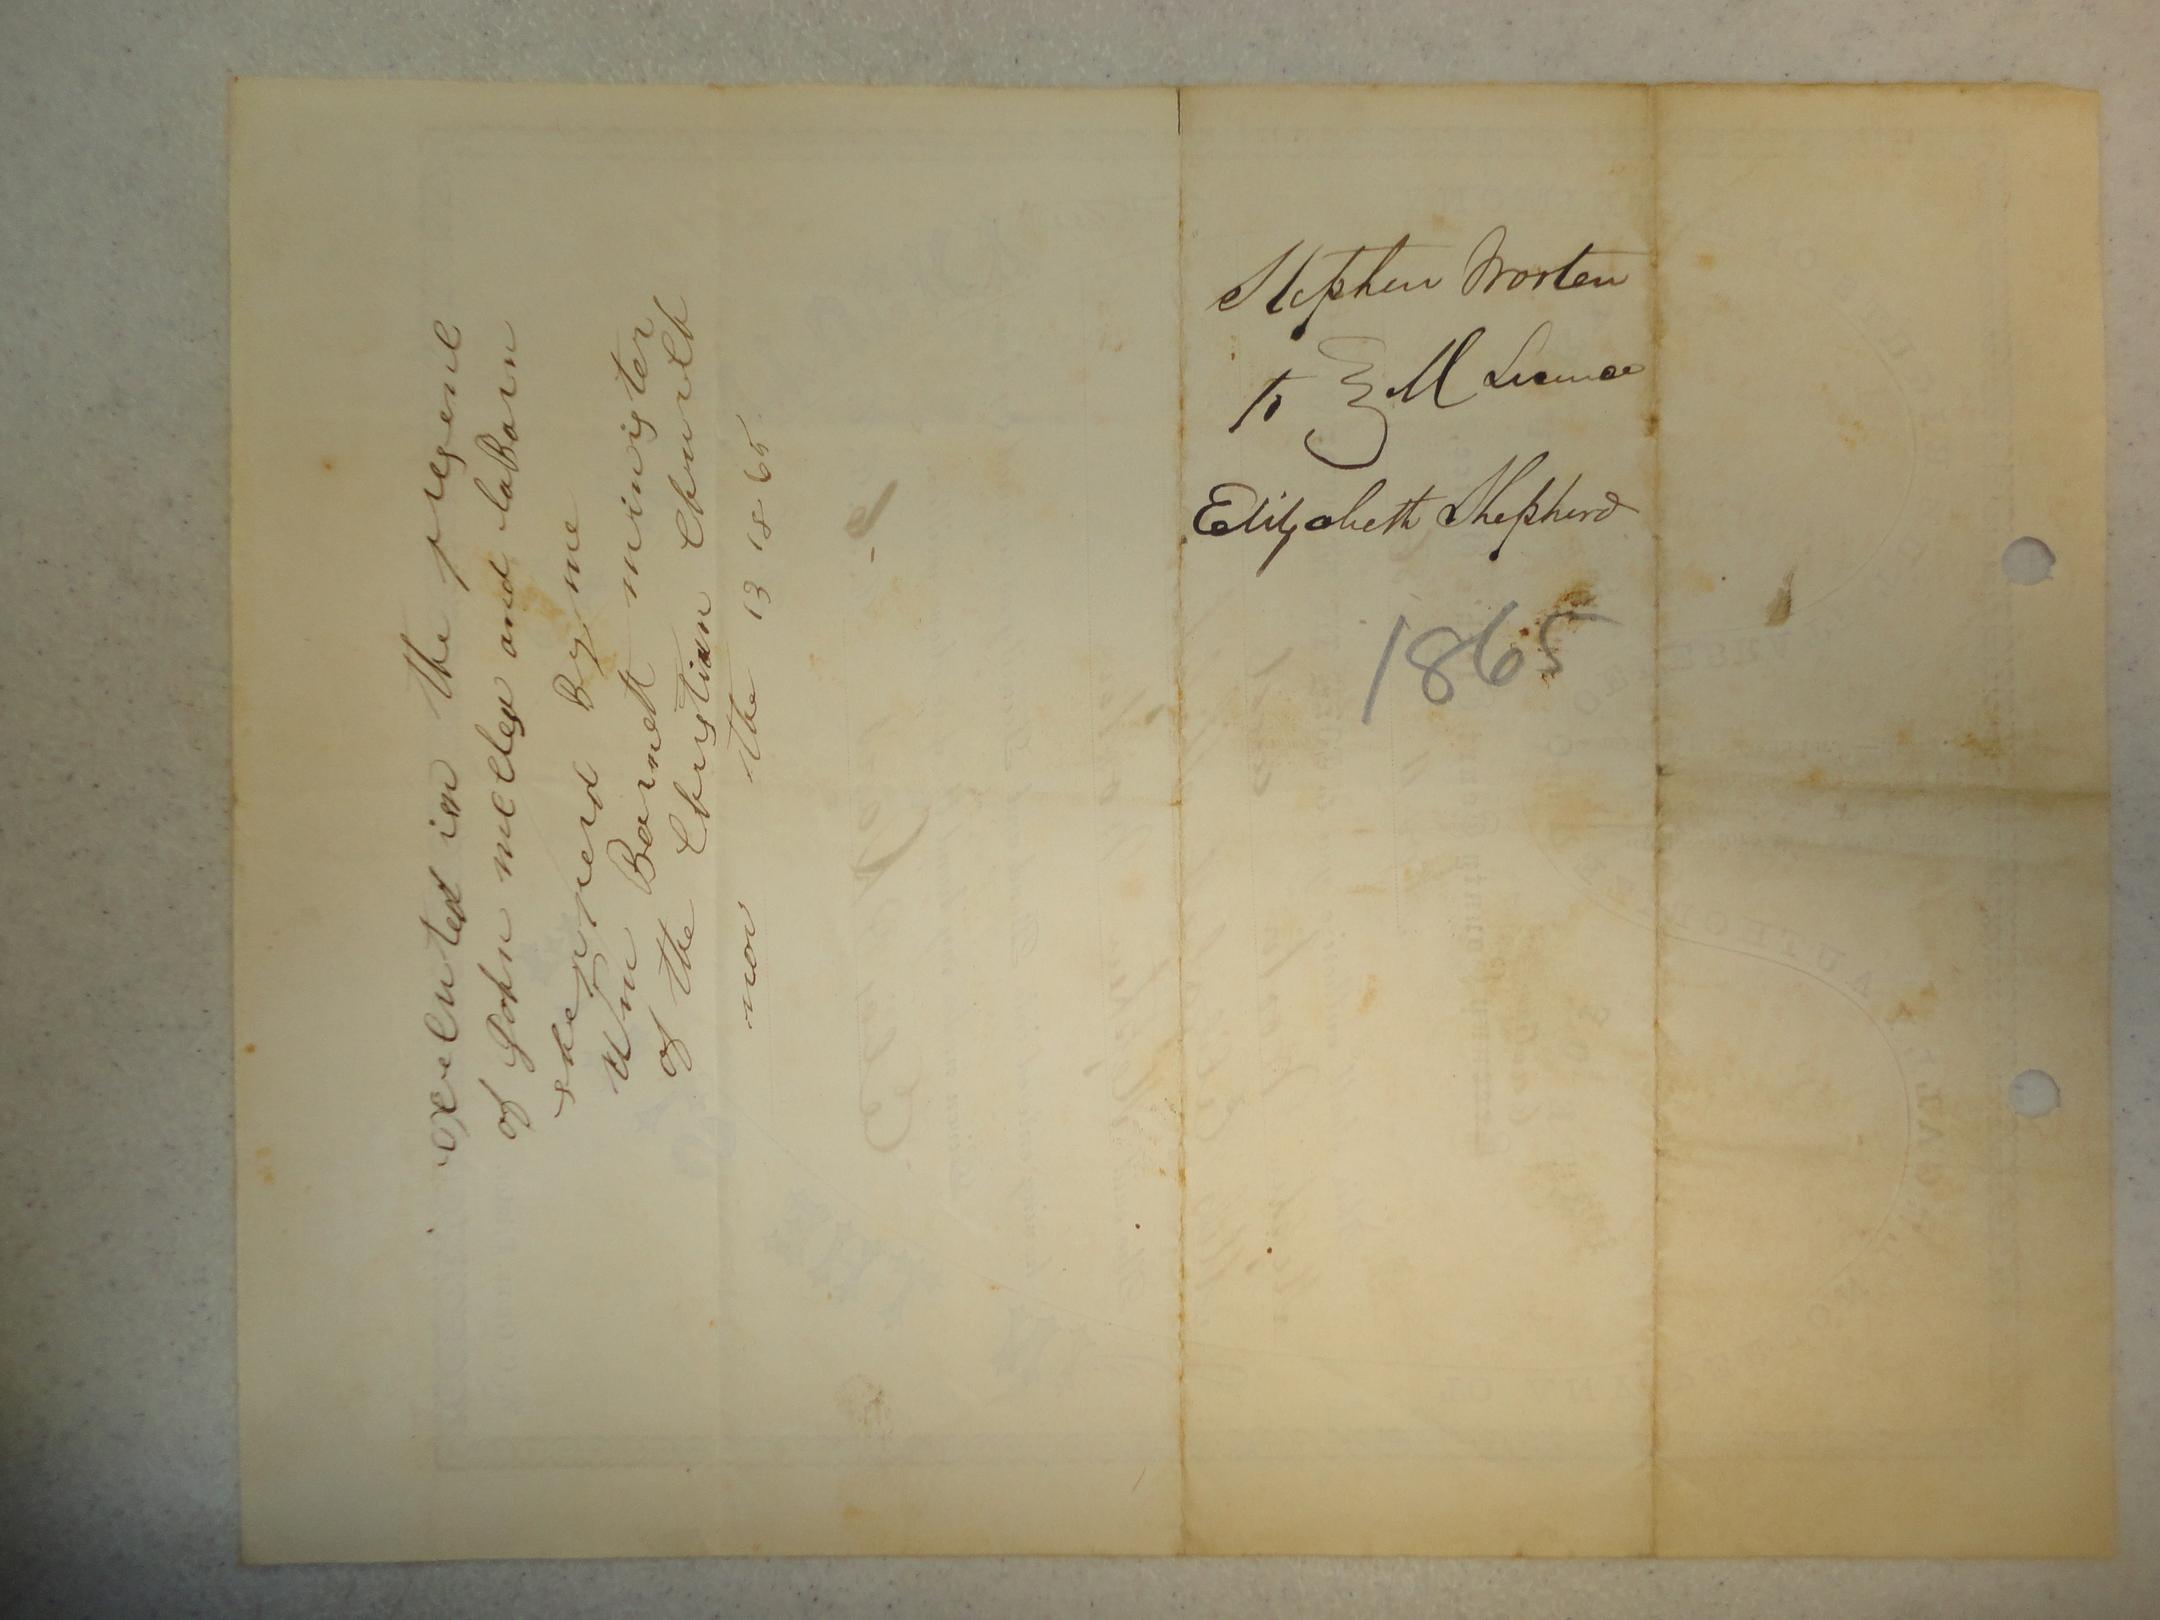 Stephen Worten
to } M Licence
Elizabeth Shepherd
1865
executed in the presenc
of John and laBorn
shepperd By me
Wm Barnett minister
of the Christian Church
nov the 13 1865